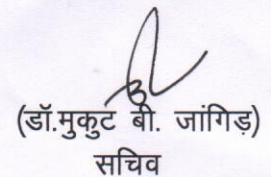 (डॉ.मुकुट बी. जांगिड़)
सचिव